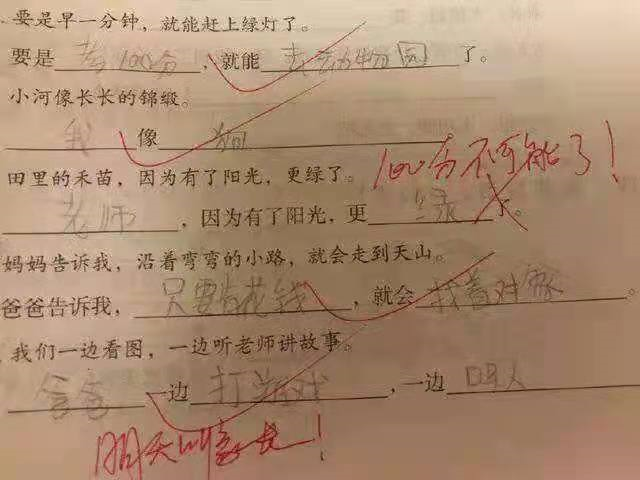 要是早一分钟，就能赶上绿灯了。
要是考100分，就能去动物园了。
小河像长长的锦缎。
我像狗
100分不可能了！
田里的禾苗，因为有了阳光，更绿了。
老师，因为有了阳光，更绿了。
妈妈告诉我，沿着弯弯的小路，就会走到天山。
爸爸告诉我，只要肯花钱，就会找着对象
我们一边看图，一边听老师讲故事。
爸爸一边打游戏，一边骂人
明天叫家长！